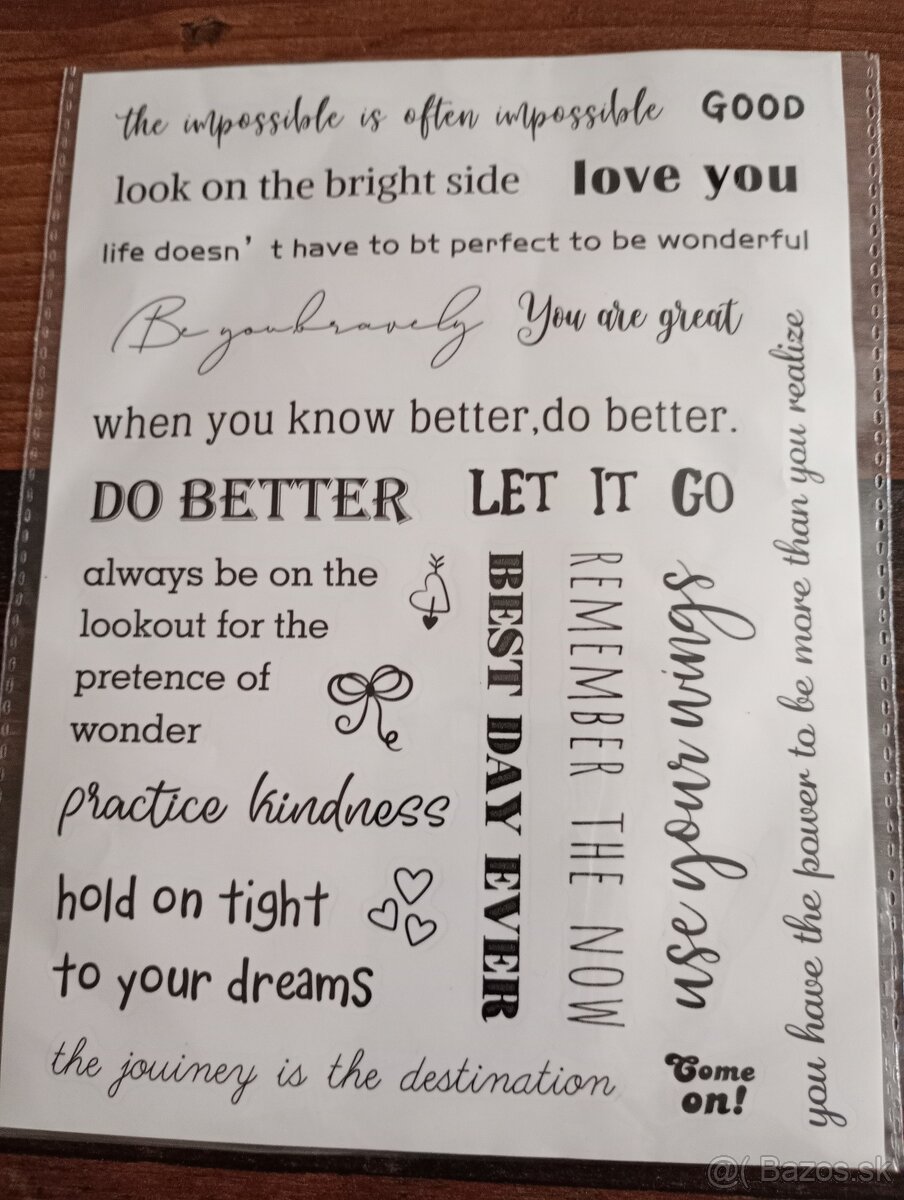 the impossible is often impossible
GOOD
look on the bright side
love you
life doesn't have to bt perfect to be wonderful
Be you bravely
You are great
when you know better,do better.
DO BETTER
LET IT GO
always be on the
lookout for the
pretence of
wonder
practice kindness
hold on tight
to your dreams
the jouiney is the destination
BEST DAY EVER
REMEMBER THE NOW
use your wings
you have the power to be more than you realize
Come
on!
@( Bazos.sk